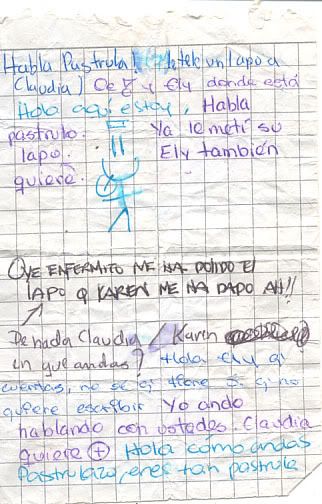 Habla Pastrula! Metele un lapo a
Claudia) Oe y Ely donde está
Hola aquí estoy, Habla
pastrulo. Ya le metí su
lapo. Ely también
quiere. +
QUE ENFERMITO ME HA DOLIDO El
lAPO Q KAREN ME HA DADO AH!!
De nada Claudia / Karen
en que andas? Hola Ely q!
cuentas, no se si tiene o si no
quiere escribir Yo ando
hablando con ustedes. Claudia
quiere + Hola cómo andas
Pastrulazo, eres tan pastrula